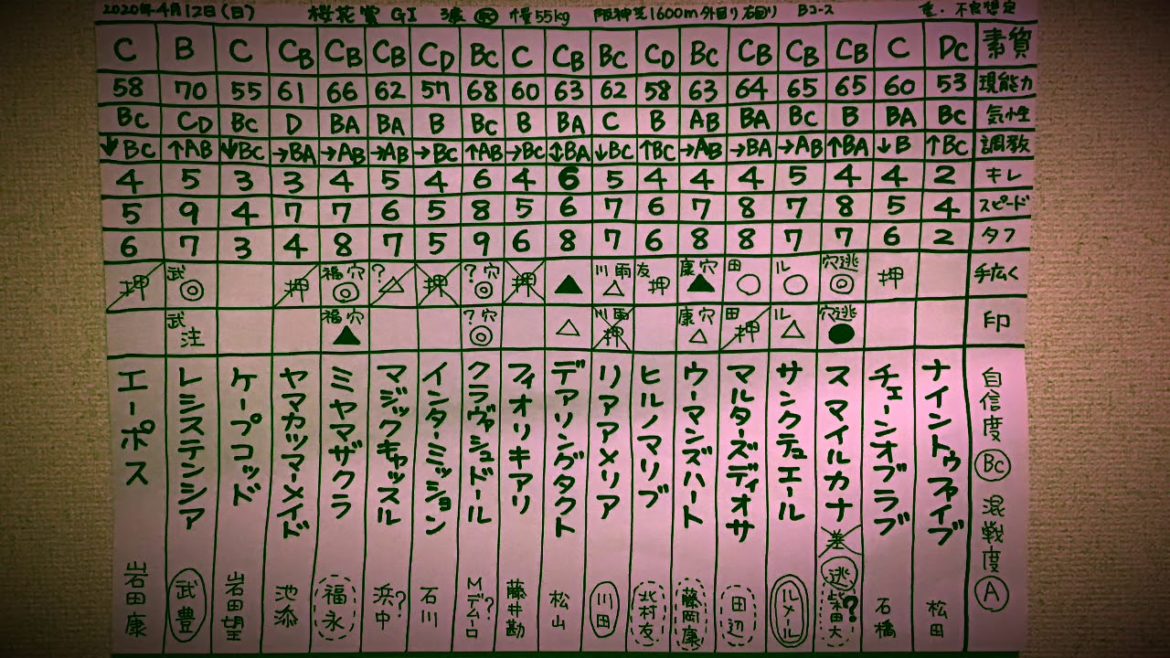 2020年4月12日(日) 桜花賞 GI 3歳 牝 定量55kg 阪神芝1600m外回り右回り Bコース 重・不良想定
C B C CB CB CB CD BC C CB BC CD BC CB CB CB C DC 素質
58 70 55 61 66 62 57 68 60 63 62 58 63 64 65 65 60 53 現能力
BC CD BC D BA BA B BC B BA C B AB BA BC B BA BC 気性
↓BC ↑AB ↓BC →BA →AB →AB →BC ↑AB →BC ↕BA ↓BC ↑BC →AB →BA →AB ↑BA ↓B ↑BC 調教
4 5 3 3 4 5 4 6 4 6 5 4 4 4 5 4 4 2 キレ
5 9 4 7 7 6 5 8 5 6 7 6 7 8 7 8 5 4 スピード
6 7 3 4 8 7 5 9 6 8 7 6 8 8 7 7 6 2 タフ
押 武◎ 押 福穴◎ ?△ 押 ?穴◎ 押 ▲ 川雨△ 友押 康穴▲ 田○ ル○ 穴逃◎ 押 手広く
武注 福穴▲ ?穴◎ △ 川雨押 康穴△ 田押 ル△ 穴逃● 印
エーポス 岩田康
レシステンシア 武豊
ケープコッド 岩田望
ヤマカツマーメイド 池添
ミヤマザクラ 福永
マジックキャッスル 浜中?
インターミッション 石川
クラヴァシュドール Mデムーロ?
フィオリキアリ 藤井勘
デアリングタクト 松山
リアアメリア 川田
ヒルノマリブ 北村友
ウーマンズハート 藤岡康
マルターズディオサ 田辺
サンクテュエール ルメール
スマイルカナ 差 逃 柴田大?
チェーンオブラブ 石橋
ナイントゥファイブ 松田
自信度 BC 混戦度 A